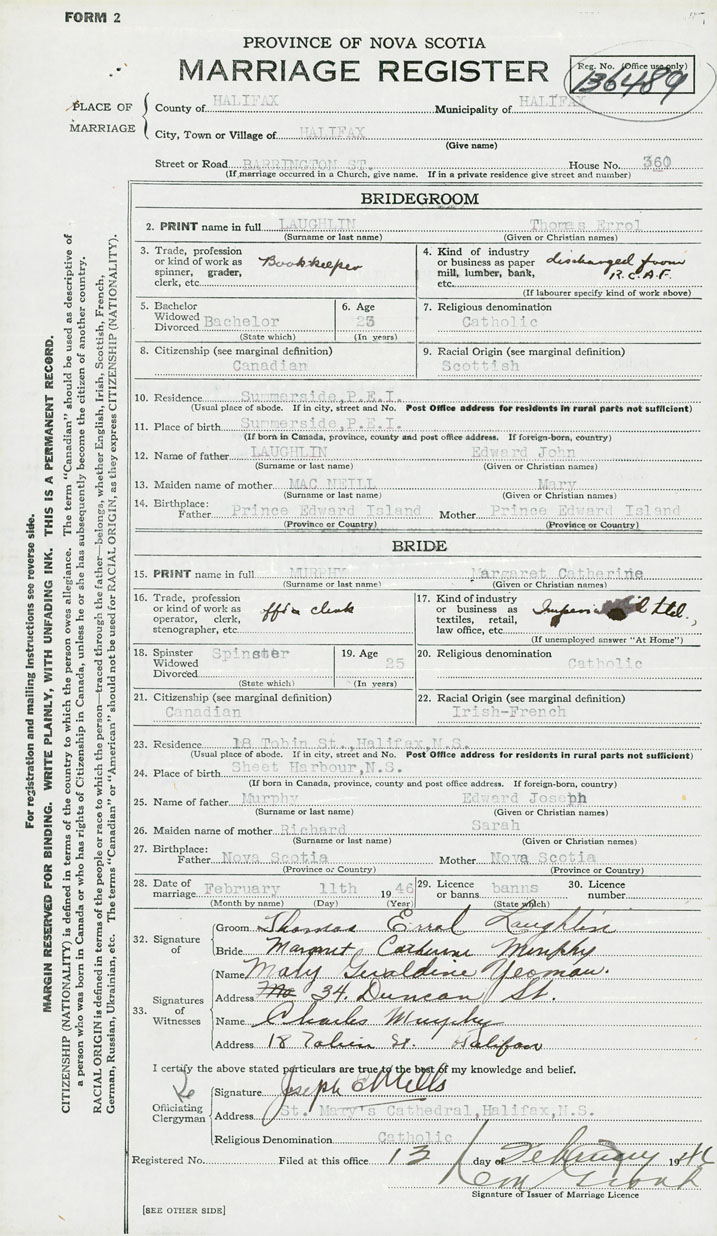 FORM 2
PROVINCE OF NOVA SCOTIA
MARRIAGE REGISTER
Reg. No. (Office use only)
136489
PLACE OF MARRIAGE
County of HALIFAX Municipality of HALIFAX
City, Town or Village of HALIFAX
(Give name)
Street or Road BARRINGTON ST. House No. 360
(If marriage occurred in a Church, give name. If in a private residence give street and number)
BRIDEGROOM
2. PRINT name in full LAUGHLIN Thomas Errol
(Surname or last name) (Given or Christian names)
3. Trade, profession or kind of work as spinner, grader, clerk, etc. Bookkeeper
4. Kind of industry or business as paper mill, lumber, bank, etc. discharged from R.C.A.F.
(If labourer specify kind of work above)
5. Bachelor Widowed Divorced Bachelor
(State which)
6. Age 23
(In years)
7. Religious denomination
Catholic
8. Citizenship (see marginal definition)
Canadian
9. Racial Origin (see marginal definition)
Scottish
10. Residence Summerside, P.E.I.
(Usual place of abode. If in city, street and No. Post Office address for residents in rural parts not sufficient)
11. Place of birth Summerside, P.E.I.
(If born in Canada, province, county and post office address. If foreign-born, country)
12. Name of father LAUGHLIN Edward John
(Surname or last name) (Given or Christian names)
13. Maiden name of mother MAC NEILL Mary
(Surname or last name) (Given or Christian names)
14. Birthplace:
Father Prince Edward Island Mother Prince Edward Island
(Province or Country) (Province or Country)
BRIDE
15. PRINT name in full MURPHY Margaret Catherine
(Surname or last name) (Given or Christian names)
16. Trade, profession or kind of work as operator, clerk, stenographer, etc. office clerk
17. Kind of industry or business as textiles, retail, law office, etc. Imperial Oil Ltd.,
(If unemployed answer "At Home")
18. Spinster Widowed Divorced Spinster
(State which)
19. Age 25
(In years)
20. Religious denomination
Catholic
21. Citizenship (see marginal definition)
Canadian
22. Racial Origin (see marginal definition)
Irish-French
23. Residence 18 Tobin St., Halifax, N.S.
(Usual place of abode. If in city, street and No. Post Office address for residents in rural parts not sufficient)
24. Place of birth Sheet Harbour, N.S.
(If born in Canada, province, county and post office address. If foreign-born, country)
25. Name of father Murphy Edward Joseph
(Surname or last name) (Given or Christian names)
26. Maiden name of mother Richard Sarah
(Surname or last name) (Given or Christian names)
27. Birthplace:
Father Nova Scotia Mother Nova Scotia
(Province or Country) (Province or Country)
28. Date of marriage February 11th 1946
(Month by name) (Day) (Year)
29. Licence or banns banns
(State which)
30. Licence number
32. Signature of
Groom Thomas Errol Laughlin
Bride Margaret Catherine Murphy
33. Signatures of Witnesses
Name Mary Geraldine Yeoman.
Address 34 Duncan St.
Name Charles Murphy
Address 18 Tobin St. Halifax
I certify the above stated particulars are true to the best of my knowledge and belief.
Officiating Clergyman
Signature Joseph E Mills
Address St. Mary's Cathedral, Halifax, N.S.
Religious Denomination Catholic
Registered No. Filed at this office 13 day of February 1946
Signature of Issuer of Marriage Licence
[SEE OTHER SIDE]
For registration and mailing instructions see reverse side.
MARGIN RESERVED FOR BINDING. WRITE PLAINLY, WITH UNFADING INK. THIS IS A PERMANENT RECORD.
CITIZENSHIP (NATIONALITY) is defined in terms of the country to which the person owes allegiance. The term "Canadian" should be used as descriptive of
a person who was born in Canada or who has rights of Citizenship in Canada, unless he or she has subsequently become the citizen of another country.
RACIAL ORIGIN is defined in terms of the people or race to which the person—traced through the father—belongs, whether English, Irish, Scottish, French,
German, Russian, Ukrainian, etc. The terms "Canadian" or "American" should not be used for RACIAL ORIGIN, as they express CITIZENSHIP (NATIONALITY).